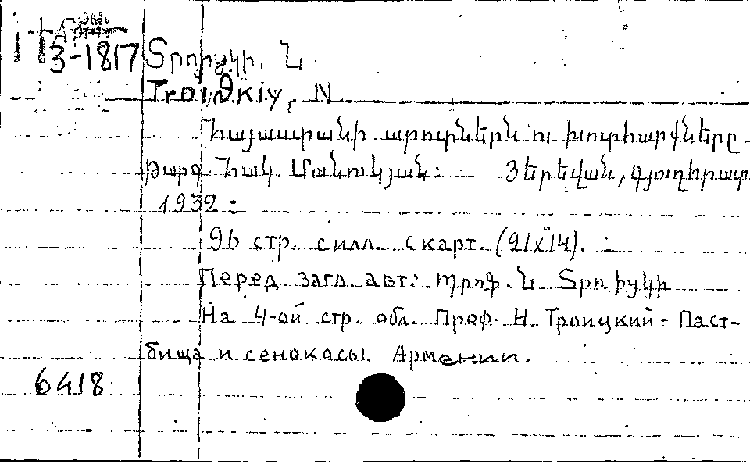 3-1817
Տրոիցկի. Ն
Troickiy, N
Հայաստանի արոտներն ու խոտհարքները
Թարգ. Հակ. Մանուկյան: Յերեվան, գյուղհրատ
1932:
96 стр. с илл. с карт. (21x14).
Перед загл. авт: պրոֆ. Ն Տրոիցկի
На 4-ой стр. обл. Проф. Н. Троицкий - Паст-
бища и сенокосы Армении.
6418